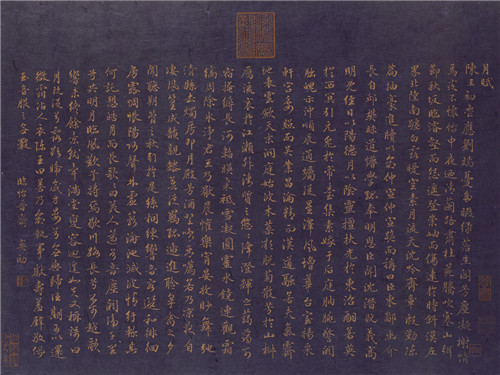 月賦
陳王初喪應劉端憂多暇綠苔生閣芳塵凝榭悄
焉疚懷不怡中夜迺清蘭路肅桂苑騰吹寒山弭
蓋秋坂臨濬壑而怨遙登崇岫而傷遠于時斜漢左
界北陸南躔白露曖空素月流天沉吟齊章殷勤陳
篇抽毫進牘以命仲宣仲宣跪而稱曰臣東鄙幽介
長自丘樊昧道懵學孤奉明恩臣聞沈潛既義高
明既經日以陽德月以陰靈擅扶光於東沼嗣若英
於西冥引玄兔於帝臺集素娥于后庭朒朓警闕
朏魄示冲順辰通燭從星澤風增華台室揚采
軒宮委照而吳業昌淪精而漢道融若夫氣霽
地表雲斂天末洞庭始波木葉微脫菊散芳於山椒
雁流哀於江瀨升清質之悠悠降澄輝之藹藹列
宿掩縟長河韜映柔祇雪凝圓靈水鏡連觀霜
縞周除冰淨君王乃厭晨歡樂宵宴收妙舞弛
清縣去燭房即月殿芳酒登鳴琴薦若乃涼夜自
淒風篁成韻親懿莫從羈孤遞進聆皋禽之夕
聞聽朔管之秋引於是絲桐練響音容選和徘徊
房露惆悵陽阿聲林虛籟淪池滅波情紆軫其
何託愬皓月而長歌歌曰美人邁兮音塵闕隔千里
兮共明月臨風歎兮將焉歇川路長兮不可越歌
響未終餘景就畢滿堂變容迴遑如失又稱歌曰
月既沒兮露欲晞歲方晏兮無與歸佳期可以還
微霜沾人衣陳王曰善乃命執事獻壽羞璧敬佩
玉音服之無斁